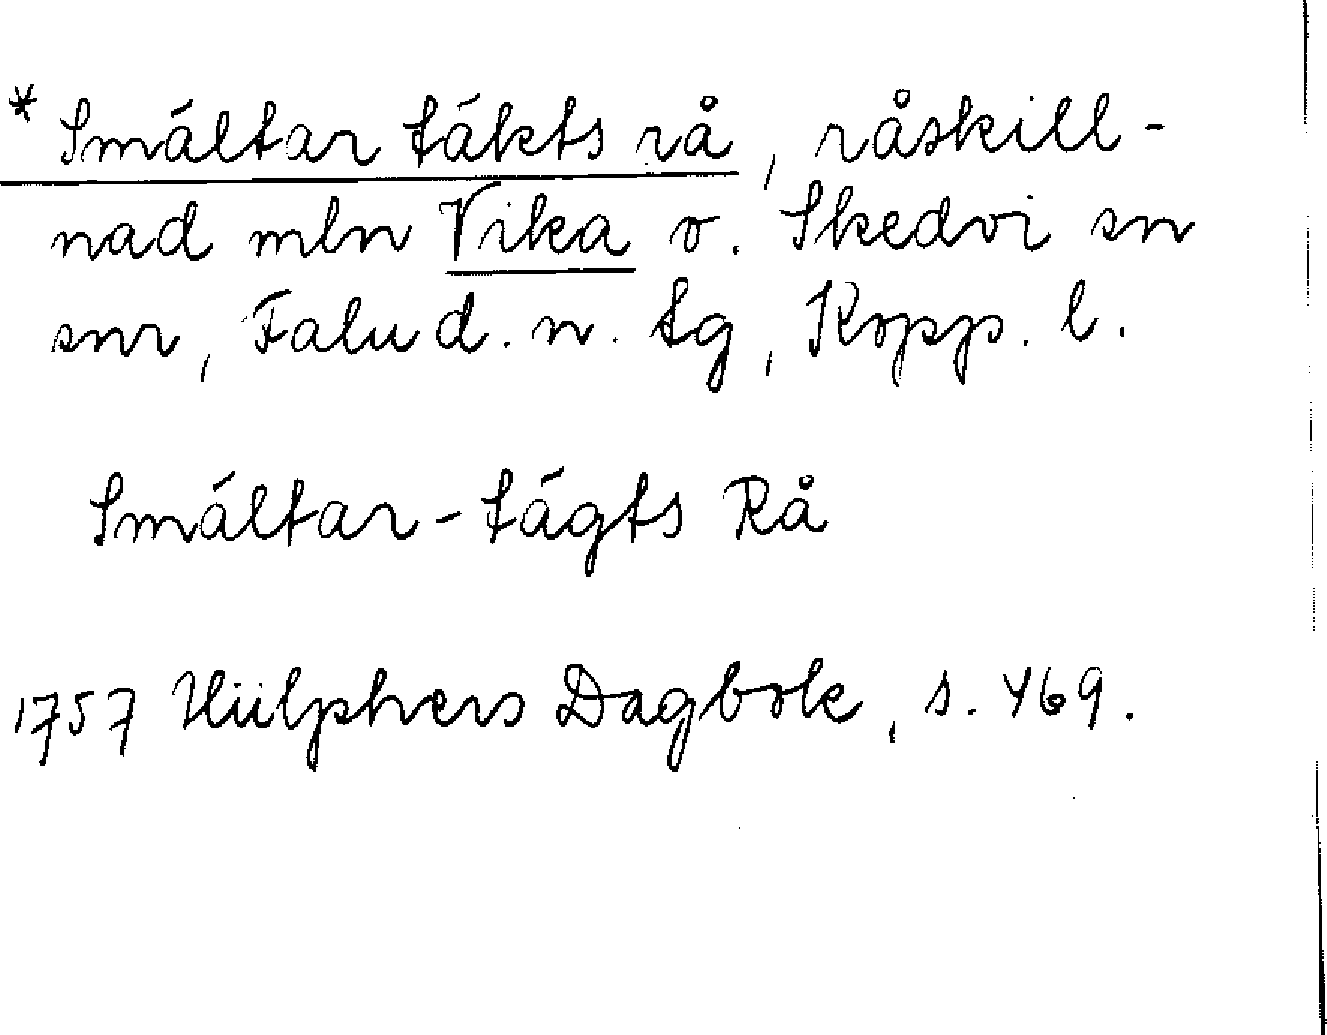 * Smältar täkts rå, råskill-
nad mln Vika o. Skedvi sn
snr, Falu d. n. tg, Kopp. l.
Smältar-tägts Rå
1757 Hülphers Dagbok, s. 469.